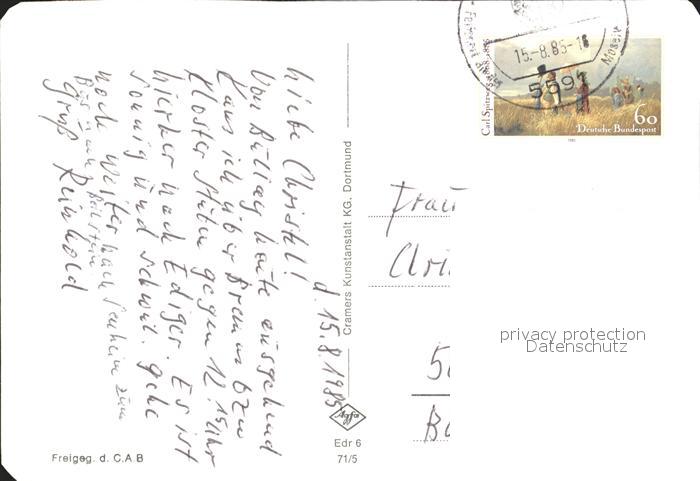 d. 15.8.1985
Liebe Christel!
Von Bullay heute ausgehend
kam ich über Bremm bzw
Kloster Stuben gegen 12.15 Uhr
hierher nach Ediger. Es ist
sonnig und schwül. gehe
noch weiter nach Senheim zum
Bus u. nach Beilstein
Gruß Reinhold
Freigeg. d. C.A.B
Cramers Kunstanstalt KG. Dortmund
Agfa
Edr 6
71/5
15.-8.85-1
559
Mosel
Carl Spitzweg 1808-1885
60
Deutsche Bundespost
1985
Frau
Chri
5
privacy protection
Datenschutz